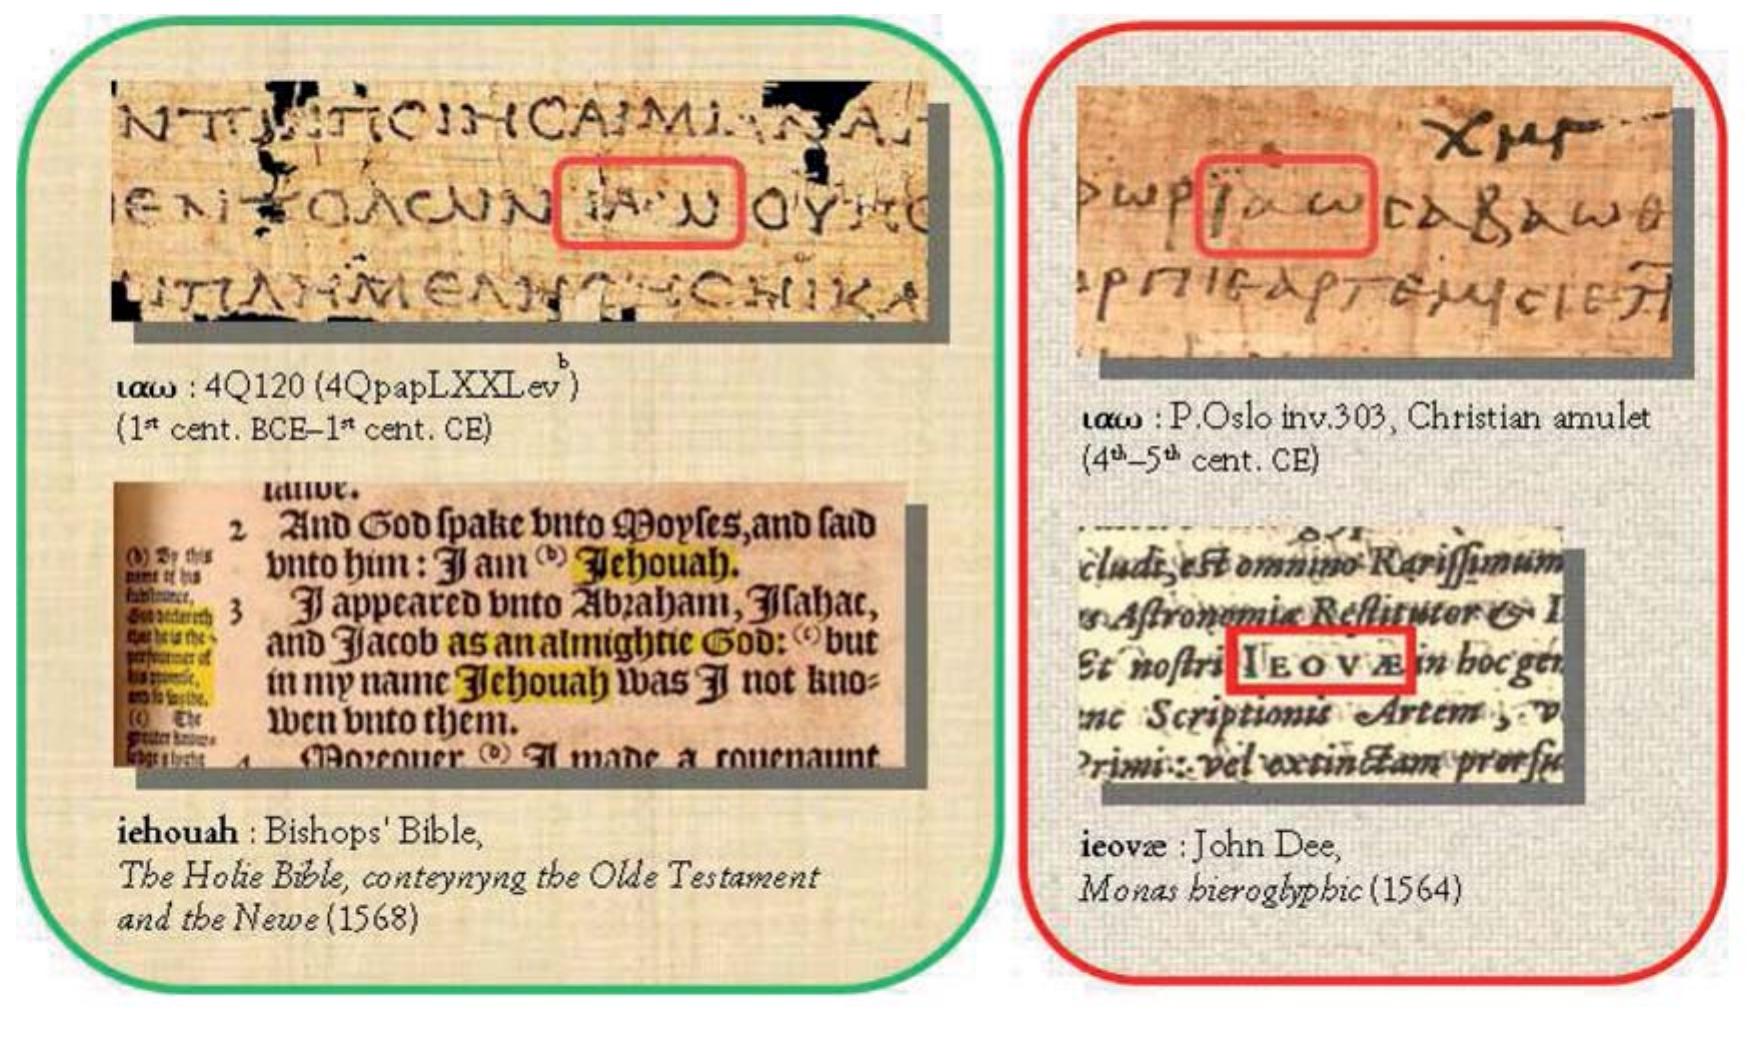 ΕΝΤΟΛΩΝ ΙΑΩ ΟΥ
ιαω : 4Q120 (4QpapLXXLevᵇ)
(1ˢᵗ cent. BCE–1ˢᵗ cent. CE)
2 And God ſpake vnto Moyſes, and ſaid
vnto him : I am (b) Jehouah.
3 I appeared vnto Abraham, Iſahac,
and Jacob as an almightie God: (c) but
in my name Jehouah was I not kno⸗
wen vnto them.
4 Moreouer (d) I made a couenaunt
(b) By this
name of his
ſubſtance,
God declareth
that he is the
perfourmer of
his promiſe,
(c) The
iehouah : Bishops' Bible,
The Holie Bible, conteynyng the Olde Testament
and the Newe (1568)
χμγ
ωρϊαωσαβαωθ
ιαω : P.Oslo inv.303, Christian amulet
(4ᵗʰ–5ᵗʰ cent. CE)
cludi, eſt omnino Rariſſimum
Aſtronomiæ Reſtitutor &
Et noſtri IEOVÆ in hoc gen
nc Scriptionis Artem,
Primi: vel extinctam prorſu
ieovæ : John Dee,
Monas hieroglyphic (1564)